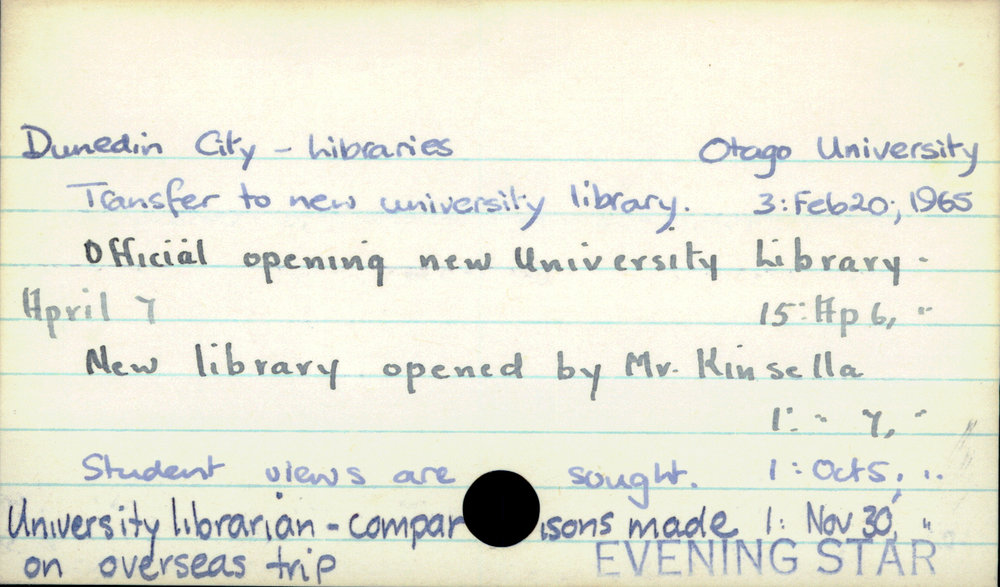 Dunedin City - Libraries Otago University
Transfer to new university library. 3: Feb 20, 1965
Official opening new University Library -
April 7 15: Ap 6, "
New library opened by Mr. Kinsella
1: " 7, "
Student views are sought. 1: Oct 5, "
University librarian - comparisons made 1: Nov 30, "
on overseas trip EVENING STAR